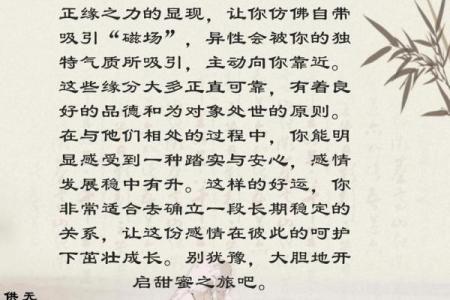 正缘之力的显现，让你仿佛自带
吸引“磁场”，异性会被你的独
特气质所吸引，主动向你靠近。
这些缘分大多正直可靠，有着良
好的品德和为对象处世的原则。
在与他们相处的过程中，你能明
显感受到一种踏实与安心，感情
发展稳中有升。这样的好运，你
非常适合去确立一段长期稳定的
关系，让这份感情在彼此的呵护
下茁壮成长。别犹豫，大胆地开
启甜蜜之旅吧。
供天